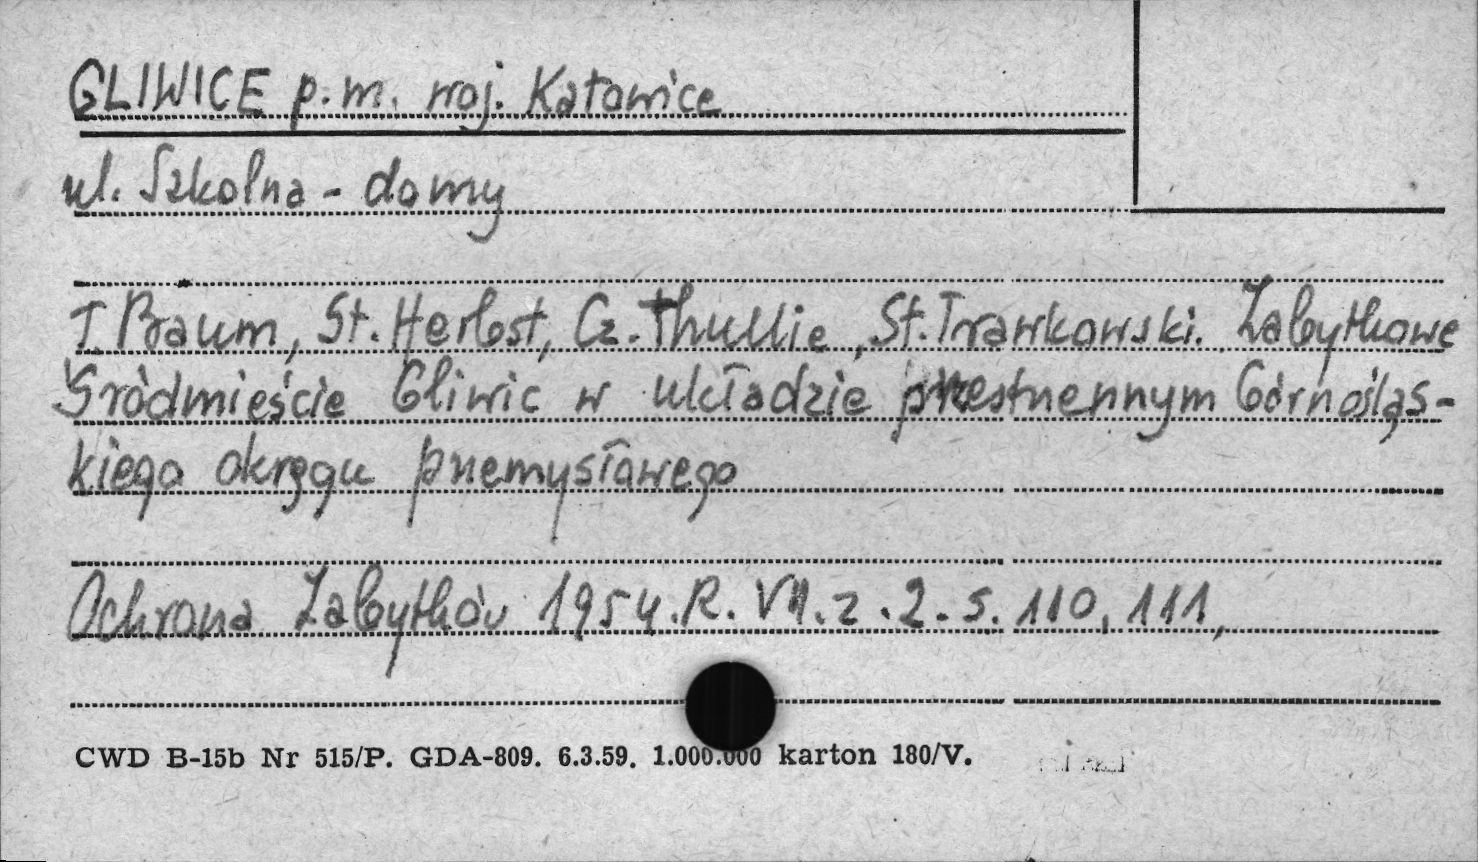 GLIWICE p.m. woj. Katowice
ul. Szkolna - domy
T. Braum, St. Herbst, Cz. Thullie, St. Trawkowski. Zabytkowe
Śródmieście Gliwic w układzie przestrzennym Górnośląs-
kiego okręgu przemysłowego
Ochrona Zabytków 1954. R. VII. z. 2. s. 110, 111,
CWD B-15b Nr 515/P. GDA-809. 6.3.59. 1.000.000 karton 180/V.